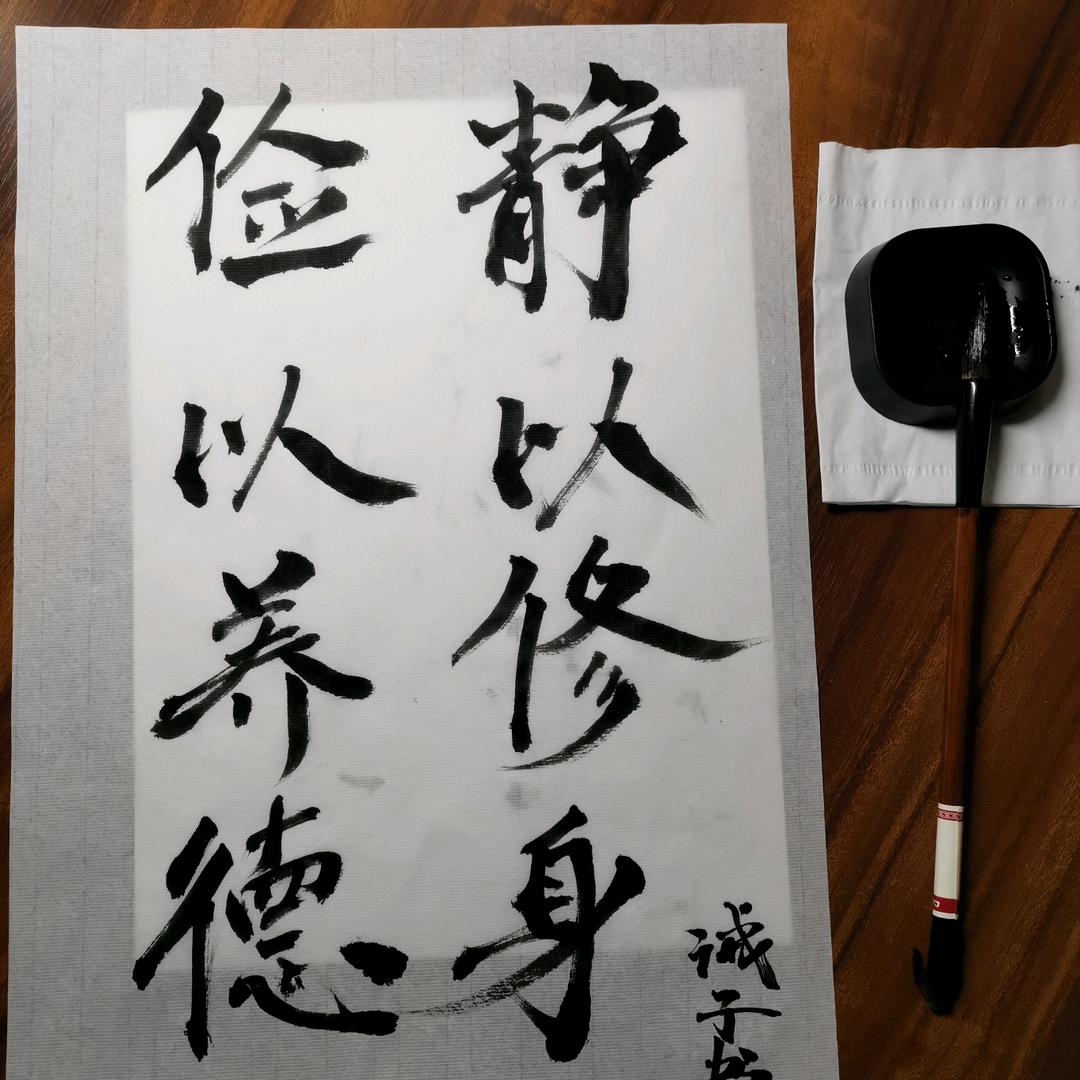 静以修身
俭以养德
诫子书